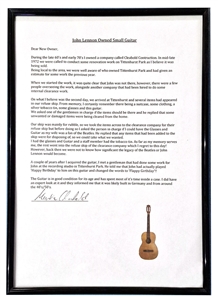 John Lennon Owned Small Guitar
Dear New Owner,
During the late 60's and early 70's I owned a company called Oxshott Contractors. In mid-July
1972 we were called to conduct some renovation work on Tittenhurst Park as I believe it was
being sold.
Being local to this area, we were well aware of who owned Tittenhurst Park and had given an
estimate for some work the previous year.
When we started the work, it was quite clear that John was not there, however, there were a few
people overseeing the work, alongside another company that had been hired to do some
internal clearance work.
On what I believe was the second day, we arrived at Tittenhurst and several items had appeared
in our refuse skip. From memory, I certainly remember there being a
silver tobacco tin, some glasses and this guitar.
We asked one of the gentlemen in charge if the items should be there and he replied that some
unwanted or damaged items were being cleared from the home.
Our skip was mainly for rubble, so we took the items across to the clearance company for there
refuse skip but before doing so I asked the person in charge if I could have the Glasses and
Guitar as my wife was a fan of the Beatles he replied that any items that had been added to the
skip were for disposing of, so we could take what we wanted.
I had the glasses and Guitar and a staff member had the tobacco tin. As for the
However, back then we were not to know how significant the legacy of the Beatles or John
Lennon would become.
A couple of years after I acquired the guitar, I met a gentleman that had done some work for
John at the recording studio in Tittenhurst Park. He told me that John had actually played
'Happy Birthday' to him on this guitar and changed the words to
The Guitar is in good condition for its age and has spent most of it's time inside a case. I did have
an expert look at it and they informed me that it was likely built in Germany and from around
the 40's/50's.